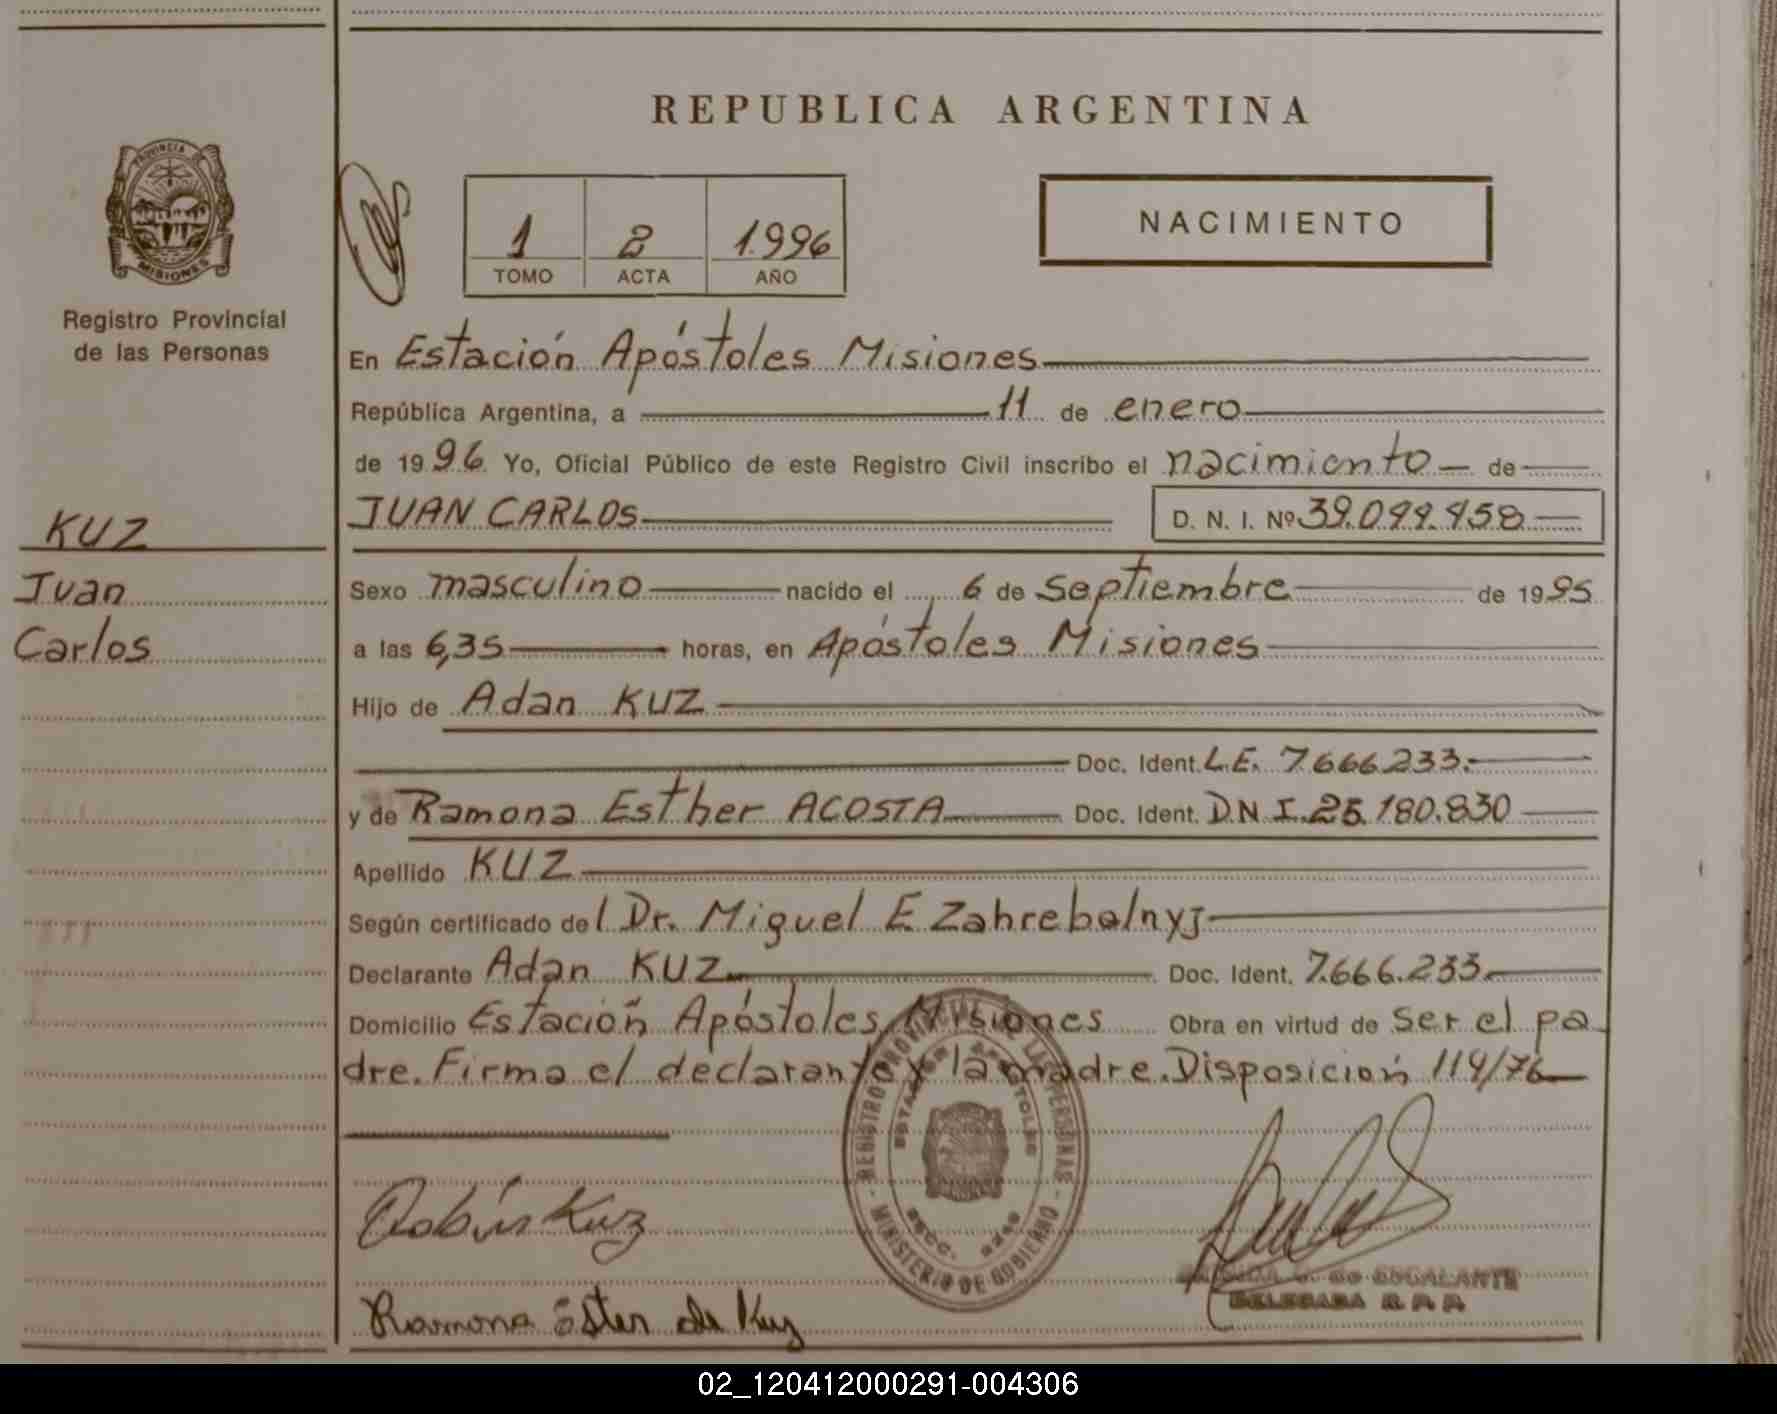 REPUBLICA ARGENTINA
PROVINCIA DE
MISIONES
Registro Provincial
de las Personas
1 2 1996
TOMO ACTA AÑO
NACIMIENTO
En Estación Apóstoles Misiones
República Argentina, a 11 de enero
de 1996 Yo, Oficial Público de este Registro Civil inscribo el nacimiento de
JUAN CARLOS D. N. I. Nº 39.044.458
KUZ
Juan
Carlos
Sexo masculino nacido el 6 de Septiembre de 1995
a las 6,35 horas, en Apóstoles Misiones
Hijo de Adan KUZ
Doc. Ident. L.E. 7.666.233.
y de Ramona Esther ACOSTA Doc. Ident. D.N.I. 25.180.830
Apellido KUZ
Según certificado del Dr. Miguel E. Zahrebelnyj
Declarante Adan KUZ Doc. Ident. 7.666.233
Domicilio Estación Apóstoles, Misiones Obra en virtud de ser el pa
dre. Firma el declarante y la madre. Disposición 114/76
REGISTRO PROVINCIAL DE LAS PERSONAS
ESTACION APOSTOLES
SECC.
- MINISTERIO DE GOBIERNO -
Kuz
de ESCALANTE
DELEGADA R. P. P.
Ramona Ester de Kuz
02_120412000291-004306